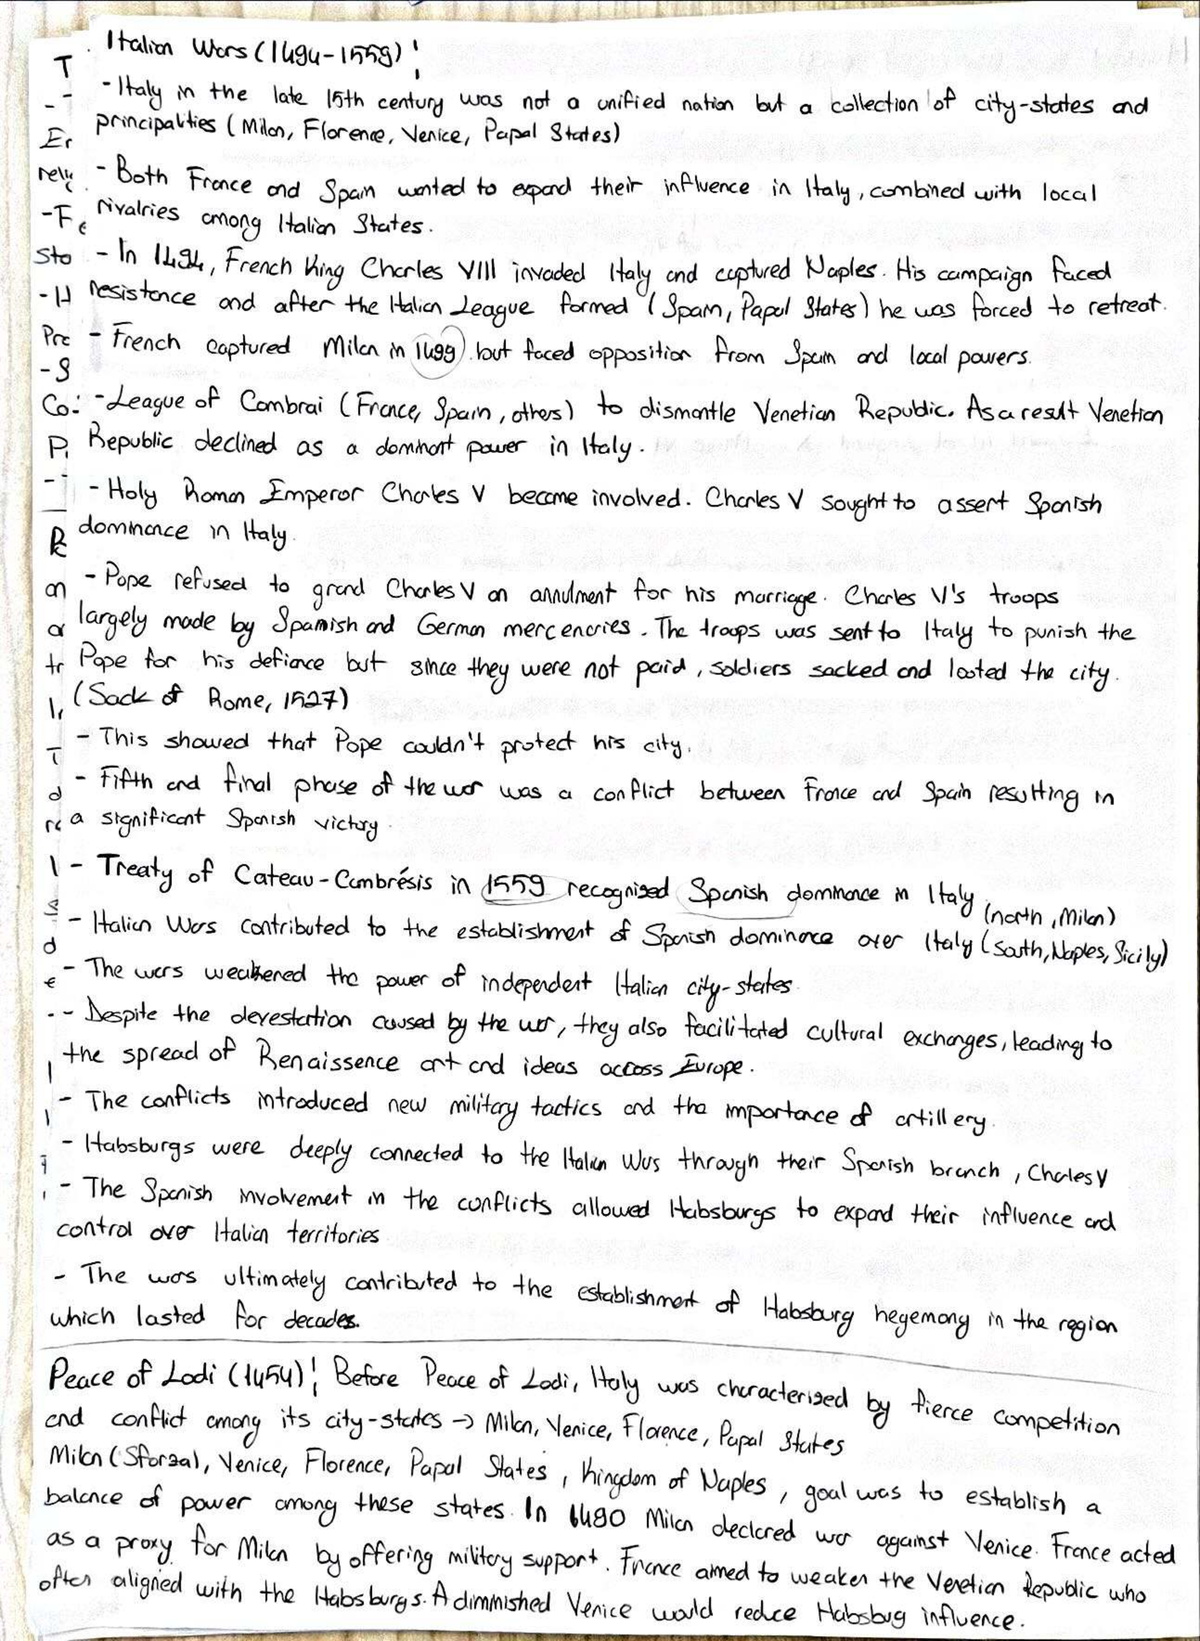 Italian Wars (1494-1559):
-Italy in the late 15th century was not a unified nation but a collection of city-states and
principalities (Milan, Florence, Venice, Papal States)
- Both France and Spain wanted to expand their influence in Italy, combined with local
rivalries among Italian States.
- In 1494, French King Charles VIII invaded Italy and captured Naples. His campaign faced
resistance and after the Italian League formed (Spain, Papal States) he was forced to retreat.
- French captured Milan in 1499 but faced opposition from Spain and local powers.
-League of Cambrai (France, Spain, others) to dismantle Venetian Republic. As a result Venetian
Republic declined as a dominant power in Italy.
- Holy Roman Emperor Charles V became involved. Charles V sought to assert Spanish
dominance in Italy.
- Pope refused to grand Charles V an annulment for his marriage. Charles V's troops
largely made by Spanish and German mercenaries. The troops was sent to Italy to punish the
Pope for his defiance but since they were not paid, soldiers sacked and looted the city.
(Sack of Rome, 1527)
- This showed that Pope couldn't protect his city.
- Fifth and final phase of the war was a conflict between France and Spain resulting in
a significant Spanish victory.
- Treaty of Cateau-Cambrésis in 1559 recognized Spanish dominance in Italy
(north, Milan)
- Italian Wars contributed to the establishment of Spanish dominance over Italy (South, Naples, Sicily)
- The wars weakened the power of independent Italian city-states
- Despite the devestation caused by the war, they also facilitated cultural exchanges, leading to
the spread of Renaissence art and ideas accoss Europe.
- The conflicts introduced new military tactics and the importance of artillery.
- Habsburgs were deeply connected to the Italian Wars through their Spanish branch, Charles V
- The Spanish involvement in the conflicts allowed Habsburgs to expand their influence and
control over Italian territories
- The wars ultimately contributed to the establishment of Habsburg hegemony in the region
which lasted for decades.
Peace of Lodi (1454): Before Peace of Lodi, Italy was characterized by fierce competition
and conflict among its city-states → Milan, Venice, Florence, Papal States
Milan (Sforza), Venice, Florence, Papal States, Kingdom of Naples, goal was to establish a
balance of power among these states. In 1490 Milan declared war against Venice. France acted
as a proxy for Milan by offering military support. France aimed to weaken the Venetian Republic who
often aligned with the Habsburgs. A dimmished Venice would reduce Habsbug influence.